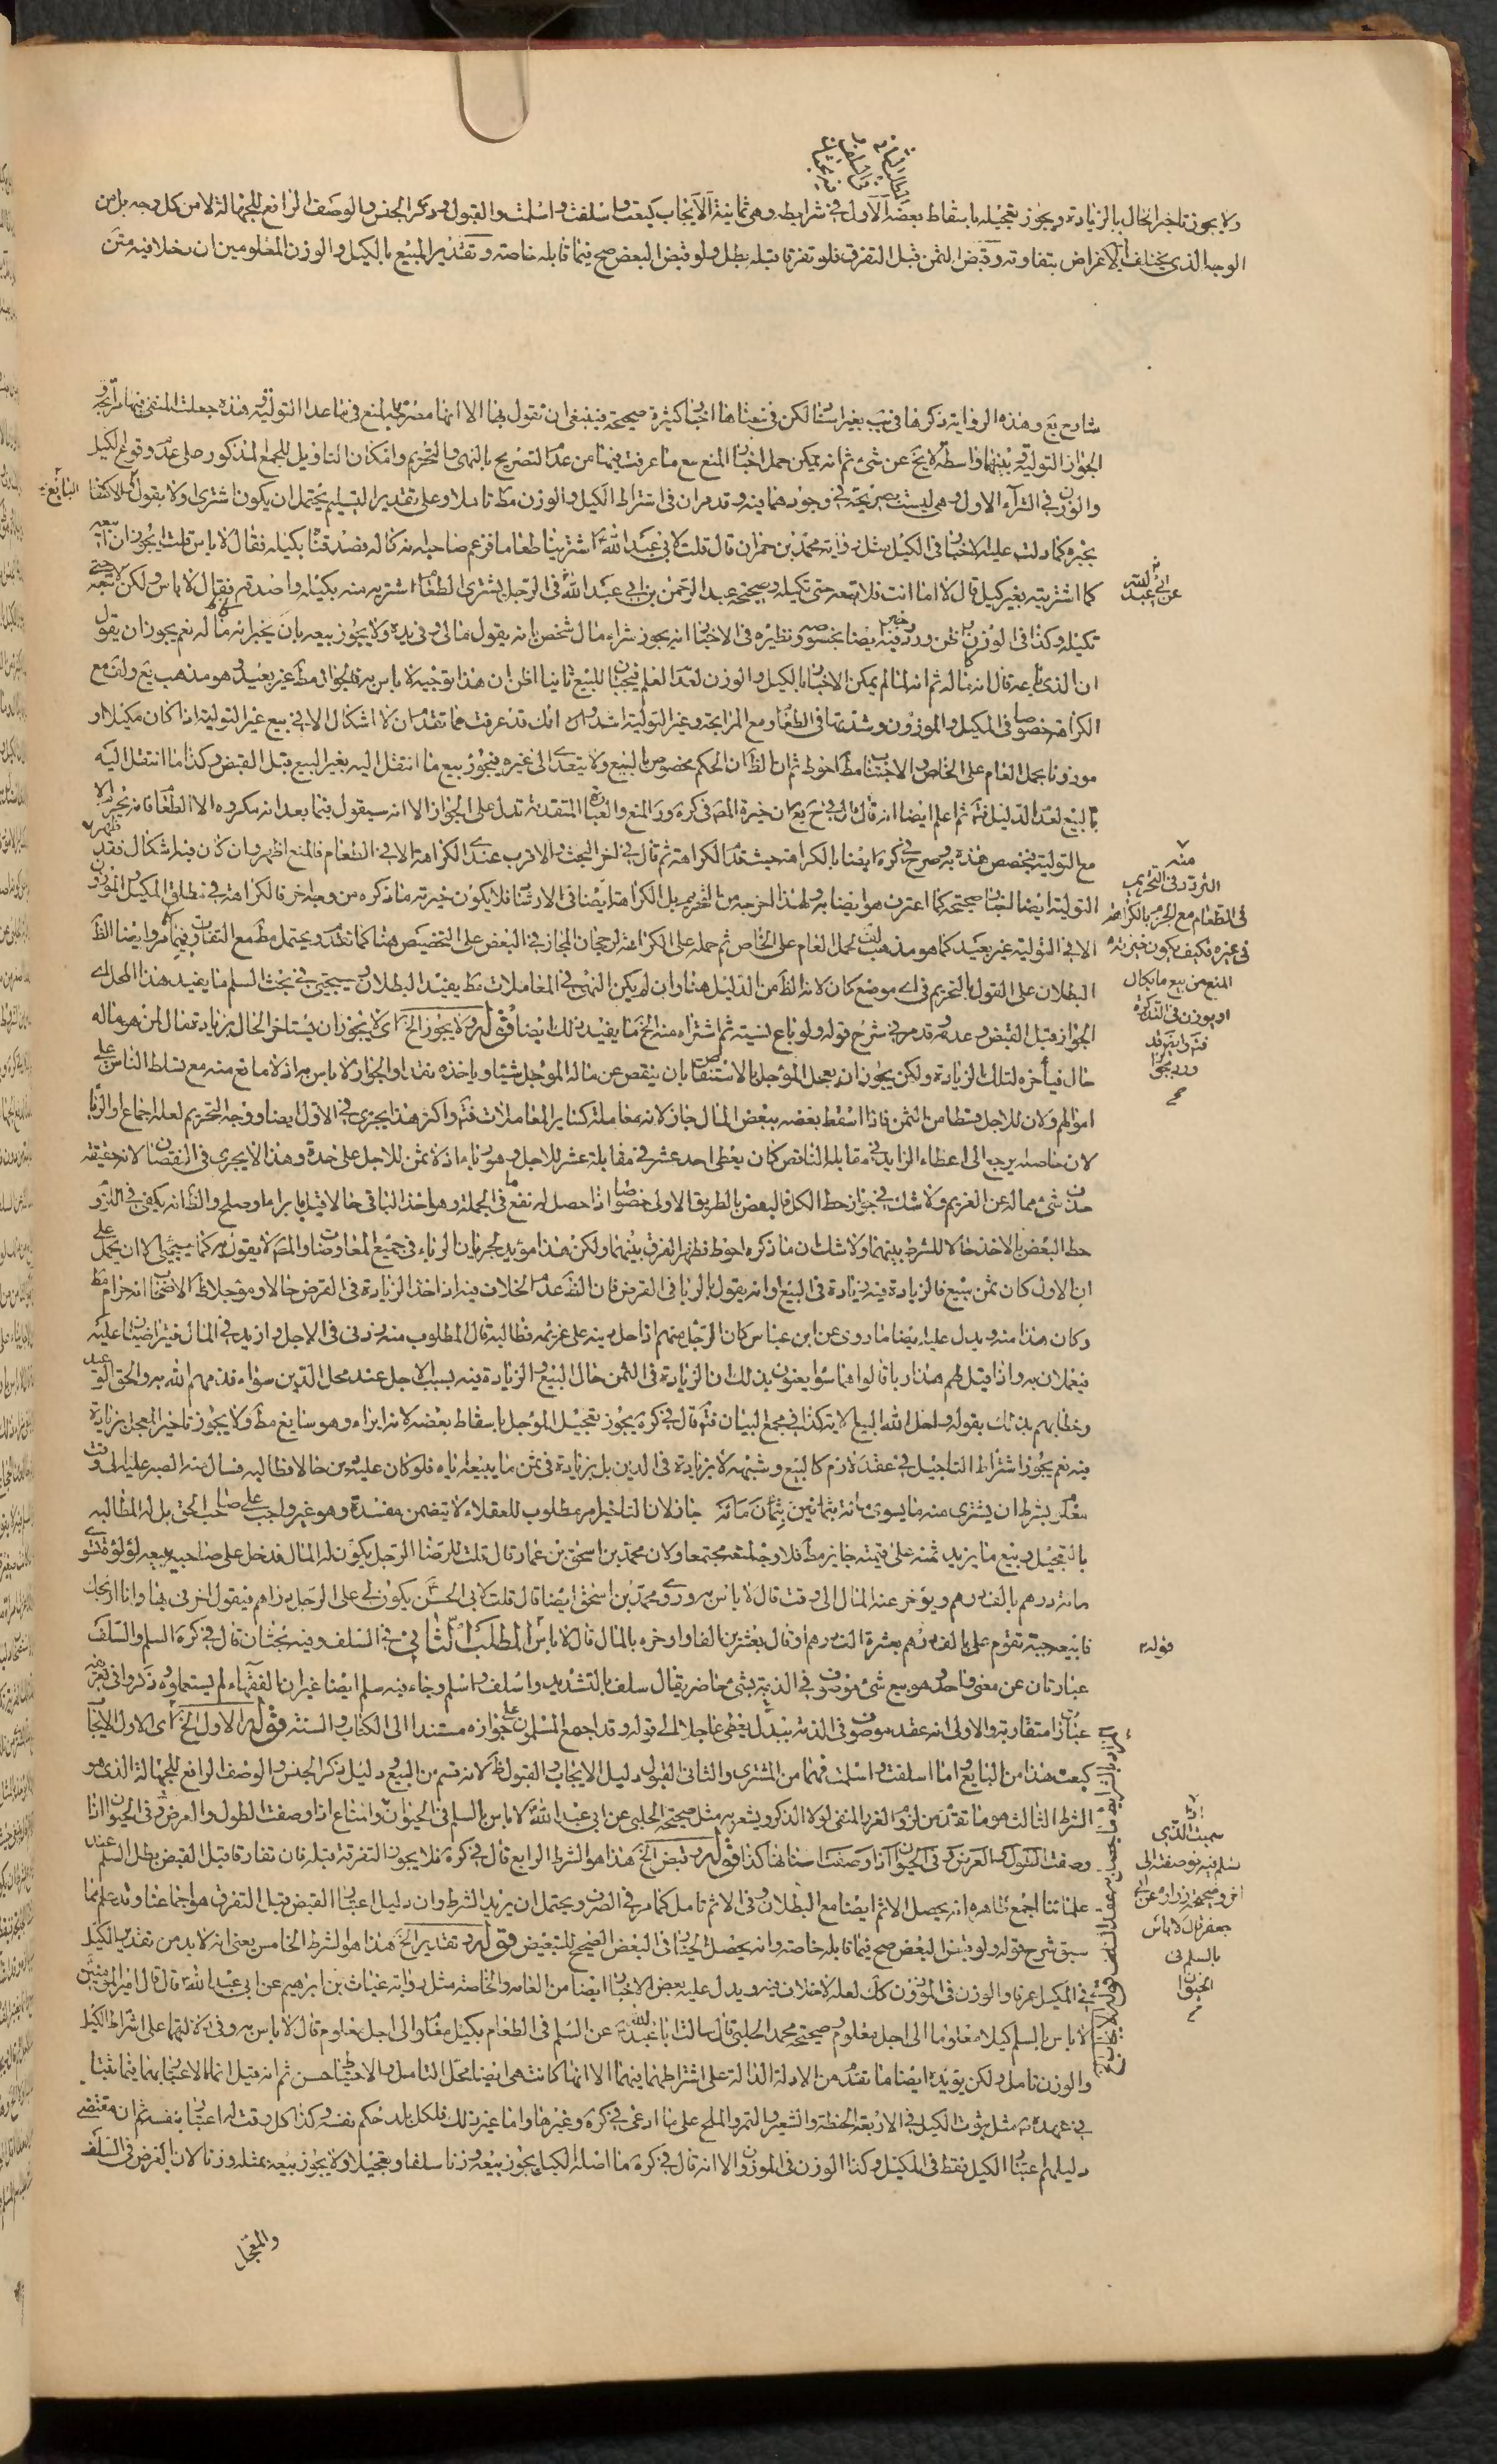 المطلب الثاني
في السلف وفيه
بحثان
ولا يجوز تاخير الحال بالزيادة ويجوز تعجيله باسقاط بعضه الاول في شرايطه وهي ثمانية الايجاب كبعت واسلفت واسلمت والقبول وذكر الجنس والوصف الرافع للجهالة لا من كل وجه بل من
الوجه الذي يختلف الاغراض بتفاوته وقبض الثمن قبل التفرق فلو تفرقا قبله بطل ولو قبض البعض صح فيما قابله خاصة وتقدير المبيع بالكيل والوزن المعلومين ان دخلا فيه متن
شارح يع وهذه الرواية ذكرها في يب بغير اسناد لكن في معناها اخبار كثيرة صحيحة فينبغي ان نقول بها الا انها مصرحة بالمنع فيما عدا التولية وهذه جعلت المنفي فيها مرابحة و
الجواز التولية وبينهما واسطة لا يخ عن شئ ثم انه يمكن حمل اخبار المنع مع ما عرفت فيها من عدم التصريح بالنهي والتحريم وامكان التاويل للجمع المذكور صلى عدم وقوع الكيل
والوزن في الشراء الاول وهي ليست صريحة في وجودهما فيه وقد مر ان في اشتراط الكيل والوزن مط تاملا وعلى تقدير التسليم يحتمل ان يكون اشترى ولا بقول البايع للاكتفاء
بخبره كما دلت عليه الاخبار في الكيل مثل رواية محمد بن حمران قال قلت لابي عبد الله ع اشترينا طعاما فزعم صاحبه انه كاله فصدقناه بكيله فقال لا باس قلت ايجوز ان ابيعه
كما اشتريته بغير كيل قال لا اما انت فلا تبعه حتى تكيله وصحيحة عبد الرحمن بن ابي عبد الله عن ابي عبد الله في الرجل يشتري الطعام اشتريه منه بكيله واصدقه فقال لا باس ولكن لا تبعه حتى
تكيله وكذا في الوزن ظن وورد فيه ايضا بخصوصه ونظيره في الاخبار انه يجوز شراء مال شخص بانه يقول مالي وفي يده ولا يجوز بيعه بان يخبر انه ماله نعم يجوز ان يقول
ان الذي باعه قال انه ماله ثم انه لما لم يمكن الاخبار بالكيل والوزن لعدم العلم فيجب للبيع ثانيا اظن ان هذا توجيه لا باس به فالجواز مط غير بعيد وهو مذهب يع ولف مع
الكراهة خصوصا في المكيل والموزون وشدتها في الطعام ومع المرابحة وغير التولية اشد وان انك قد عرفت مما تقدم ان لا اشكال الا في بيع غير التولية اذا كان مكيلا او
موزونا بحمل العام على الخاص والاجتناب مط احوط ثم ان الظ ان الحكم مخصوص بالمبيع ولا يتعدى الى غيره فيجوز بيع ما انتقل اليه بغير البيع قبل القبض وكذا ما انتقل اليه
بالبيع لعدم الدليل فتم ثم اعلم ايضا انه قال في ح يع ان خيرة المص في كره ورد المنع والعبارة المتقدمة تدل على الجواز الا انه سيقول فيما بعد انه مكروه الا الطعام فانه يحرم الا
مع التولية بتخصص هذه به وصرح في كره ايضا بالكراهة حيث قدم الكراهة ثم قال في اخر البحث والاقرب عندي الكراهة الا في الطعام فالمنع اظهر وان كان فيه اشكال فقد ظهر
التولية ايضا لاخبار صحيحة كما اعترف هو ايضا به ولهذا اخرجه من التحريم بل الكراهة ايضا في الارشاد فلا يكون خيرته ما ذكره من وجه اخر فالكراهة في مطلق المكيل والموزون
الا في التولية غير بعيد كما هو مذهب لف لحمل العام على الخاص ثم حمله على الكراهة لرجحان المجاز في البعض على التخصيص هنا كما تقدم ويحتمل مط مع التفاوت فيها مر وايضا الظ
البطلان على القول بالتحريم في اي موضع كان لانه الظ من الدليل هنا وان لم يكن النهي في المعاملات مط يفيد البطلان وسيجئ في بحث السلم ما يفيد هذا المحل اي
الجواز قبل القبض وعدمه وقد مر في شرح قوله ولو باع نسيئة ثم اشتراه منه الخ ما يفيد ذلك ايضا قوله ولا يجوز الخ اي لا يجوز ان يستاخر الحال بزيادة مال لمن هو ماله
حال فيأخره لتلك الزيادة ولكن يجوز ان يعجل المؤجل بالاستنقاص بان ينقص عن ماله المؤجل شيئا وياخذه نقدا والجواز لا باس به اذ لا مانع منه مع تسلط الناس على
اموالهم ولان للاجل قسطا من الثمن فاذا اسقط بعضه ببعض المال جاز لانه معاملة كساير المعاملات فتم واكثر هذا يجري في الاول ايضا ووجه التحريم لعله اجماع او الربا
لان خاصته يرجع الى اعطاء الزايد في مقابلة الناقص كان يعطي احد عشر في مقابلة عشر للاجل وهو ربا اذ لا ثمن للاجل على حدة وهذا لا يجري في النقصان لانه حقيقة
حذف شئ مما له عن الغريم ولا شك في جواز حط الكل فالبعض بالطريق الاولى خصوصا اذا حصل له نفع ما في الجملة وهو اخذ الباقي حالا قيل بابراء او صلح والظ انه يكفي في اللزوم
حط البعض بالاخذ حالا للشرط بينهما ولا شك ان ما ذكره احوط فظهر الفرق بينهما ولكن هذا مؤيد لجريان الرباء في جميع المعاوضات والمص لا يقول به كما سيجئ الا ان يحمل على
ان الاول كان ثمن مبيع فالزيادة فيه زيادة في البيع وانه يقول بالربا في القرض فان الظ عدم الخلاف فيه اذا اخذ الزيادة في القرض حالا ومؤجلا ظ الاصحاب انه حرام مط
وكان هذا منه ويدل عليه ايضا ما روى عن ابن عباس كان الرجل منهم اذا حل دينه على غريمه فطالبه قال المطلوب منه زدني في الاجل وازيدك في المال فيتراضيان عليه
فيعملان به واذا قيل لهم هذا ربا قالوا هما سواء يعنون بذلك ان الزيادة في الثمن حال البيع والزيادة فيه بسبب الاجل عند محل الدين سواء فذمهم الله به والحق الوعيد
وخطاهم بذلك بقوله واحل الله البيع الاية كذا في مجمع البيان فتم قال في كره يجوز تعجيل المؤجل باسقاط بعضه لانه ابراء وهو سايغ مط ولا يجوز تاخير المعجل بزيادة
فيه نعم يجوز اشتراط التاجيل في عقد لازم كالبيع وشبهه لا بزيادة في الدين بل بزيادة في ثمن ما يبيعه اياه فلو كان عليه دين حالا فطالبه فسال منه الصبر عليه الى وقت
معلوم بشرط ان يشتري منه ما يسوى مائة بثمانين بثمان مائة جاز لان التاخير امر مطلوب للعقلاء لا يتضمن مفسدة وهو غير واجب على صاحب الحق بل له المطالبة
بالتعجيل وبيع ما يزيد ثمنه على قيمته جايز مط فلا وجه لمنعه مجتمعا ولان محمد بن اسحق بن عمار قال قلت للرضا ع الرجل يكون له المال فدخل على صاحبه يبيعه لؤلؤة تسوى
مائة درهم بالف درهم ويؤخر عنه المال الى وقت قال لا باس به وروى محمد بن اسحق ايضا قال قلت لابي الحسن ع يكون لي على الرجل دراهم فيقول اخرني بها وانا اربحك
فابيعه جبة تقوم علي بالف درهم بعشرة الف درهم او قال بعشرين الفا واوخره بالمال قال لا باس المطلب الثاني في السلف وفيه بحثان قال في كره السلم والسلف
عبارتان عن معنى واحد وهو بيع شئ موصوف في الذمة بشئ حاضر يقال سلف بالتشديد واسلف واسلم وجاء فيه سلم ايضا غير ان الفقهاء لم يستعملوه وذكروا في تعريفه
عبارات متقاربة والاولى انه عقد موصوف في الذمة ببدل يعطى عاجلا الى قوله وقد اجمع المسلمون على جوازه مستندا الى الكتاب والسنة قوله الاول الخ اي الاول الايجاب
كبعت هذا من البايع واما اسلفت واسلمت فهما من المشتري والثاني القبول دليل الايجاب والقبول ظ لانه قسم من البيع ودليل ذكر الجنس والوصف الرافع للجهالة الذي هو
الشرط الثالث هو ما تقدم من لزوم الغرر المنفي لولا الذكر ويشعر به مثل صحيحة الحلبي عن ابي عبد الله ع لا باس بالسلم في الحيوان وامتناع اذا وصفت الطول والعرض وفي الحيوان اذا
وصفت الطول والعرض وفي الحيوان اذا وصفت اسنانها كذا قوله وقبض الخ هذا هو الشرط الرابع قال في كره فلا يجوز التفرقة قبله فان تفارقا قبل القبض بطل السلم عند
علمائنا اجمع ظاهره انه يحصل الاثم ايضا مع البطلان وفي الاثم تامل كما مر في الصرف ويحتمل ان يريد الشرط وان دليل اعتبار القبض قبل التفرق هو اجماعنا وقد علم مما
سبق شرح قوله ولو قبض البعض صح فيما قابله خاصة وانه يحصل الخيار في البعض الصحيح للتبعيض قوله وتقدير الخ هذا هو الشرط الخامس يعني انه لابد من تقدير الكيل
في المكيل عرفا والوزن في الموزون كك لعله لا خلاف فيه ويدل عليه بعض الاخبار ايضا من العامة والخاصة مثل رواية غياث بن ابرهيم عن ابي عبد الله ع قال قال امير المؤمنين
لا باس بالسلم كيلا معلوما الى اجل معلوم وصحيحة محمد الحلبي قال سالت ابا عبد الله ع عن السلم في الطعام بكيل معلوم الى اجل معلوم قال لا باس به وفي دلالتهما على اشتراط الكيل
والوزن تامل ولكن يؤيده ايضا ما تقدم من الادلة الدالة على اشتراطهما فيهما الا انها كانت هي ايضا محل التامل والاحتياط حسن ثم انه قيل انما الاعتبار بهما فيما ثبتا
في عهده ص مثل ثبوت الكيل في الاربعة الحنطة والشعير والتمر والملح على ما ادعى في كره وغيرها واما غير ذلك فلكل بلد حكم نفسه وكذا كل وقت له اعتبار بنفسه ثم ان مقتضى
دليلهم اعتبار الكيل فقط في المكيل وكذا الوزن في الموزون الا انه قال في كره ما اصله الكيل يجوز بيعه وزنا سلفا وتعجيلا ولا يجوز بيعه بمثله وزنا لان الغرض في السلف
والمعجل
البايع
عن ابي عبد الله
منه
التردد في التحريم
في الطعام مع الجزم بالكراهة
في غيره فكيف يكون خيرته
المنع من بيع ما يكال
او يوزن في التذكرة
قوله
سميت الذي
تسلم فيه فوصفته الى
اخره وصحيحة زرارة عن ابي
جعفر قال لا باس
بالسلم في
الحيوان